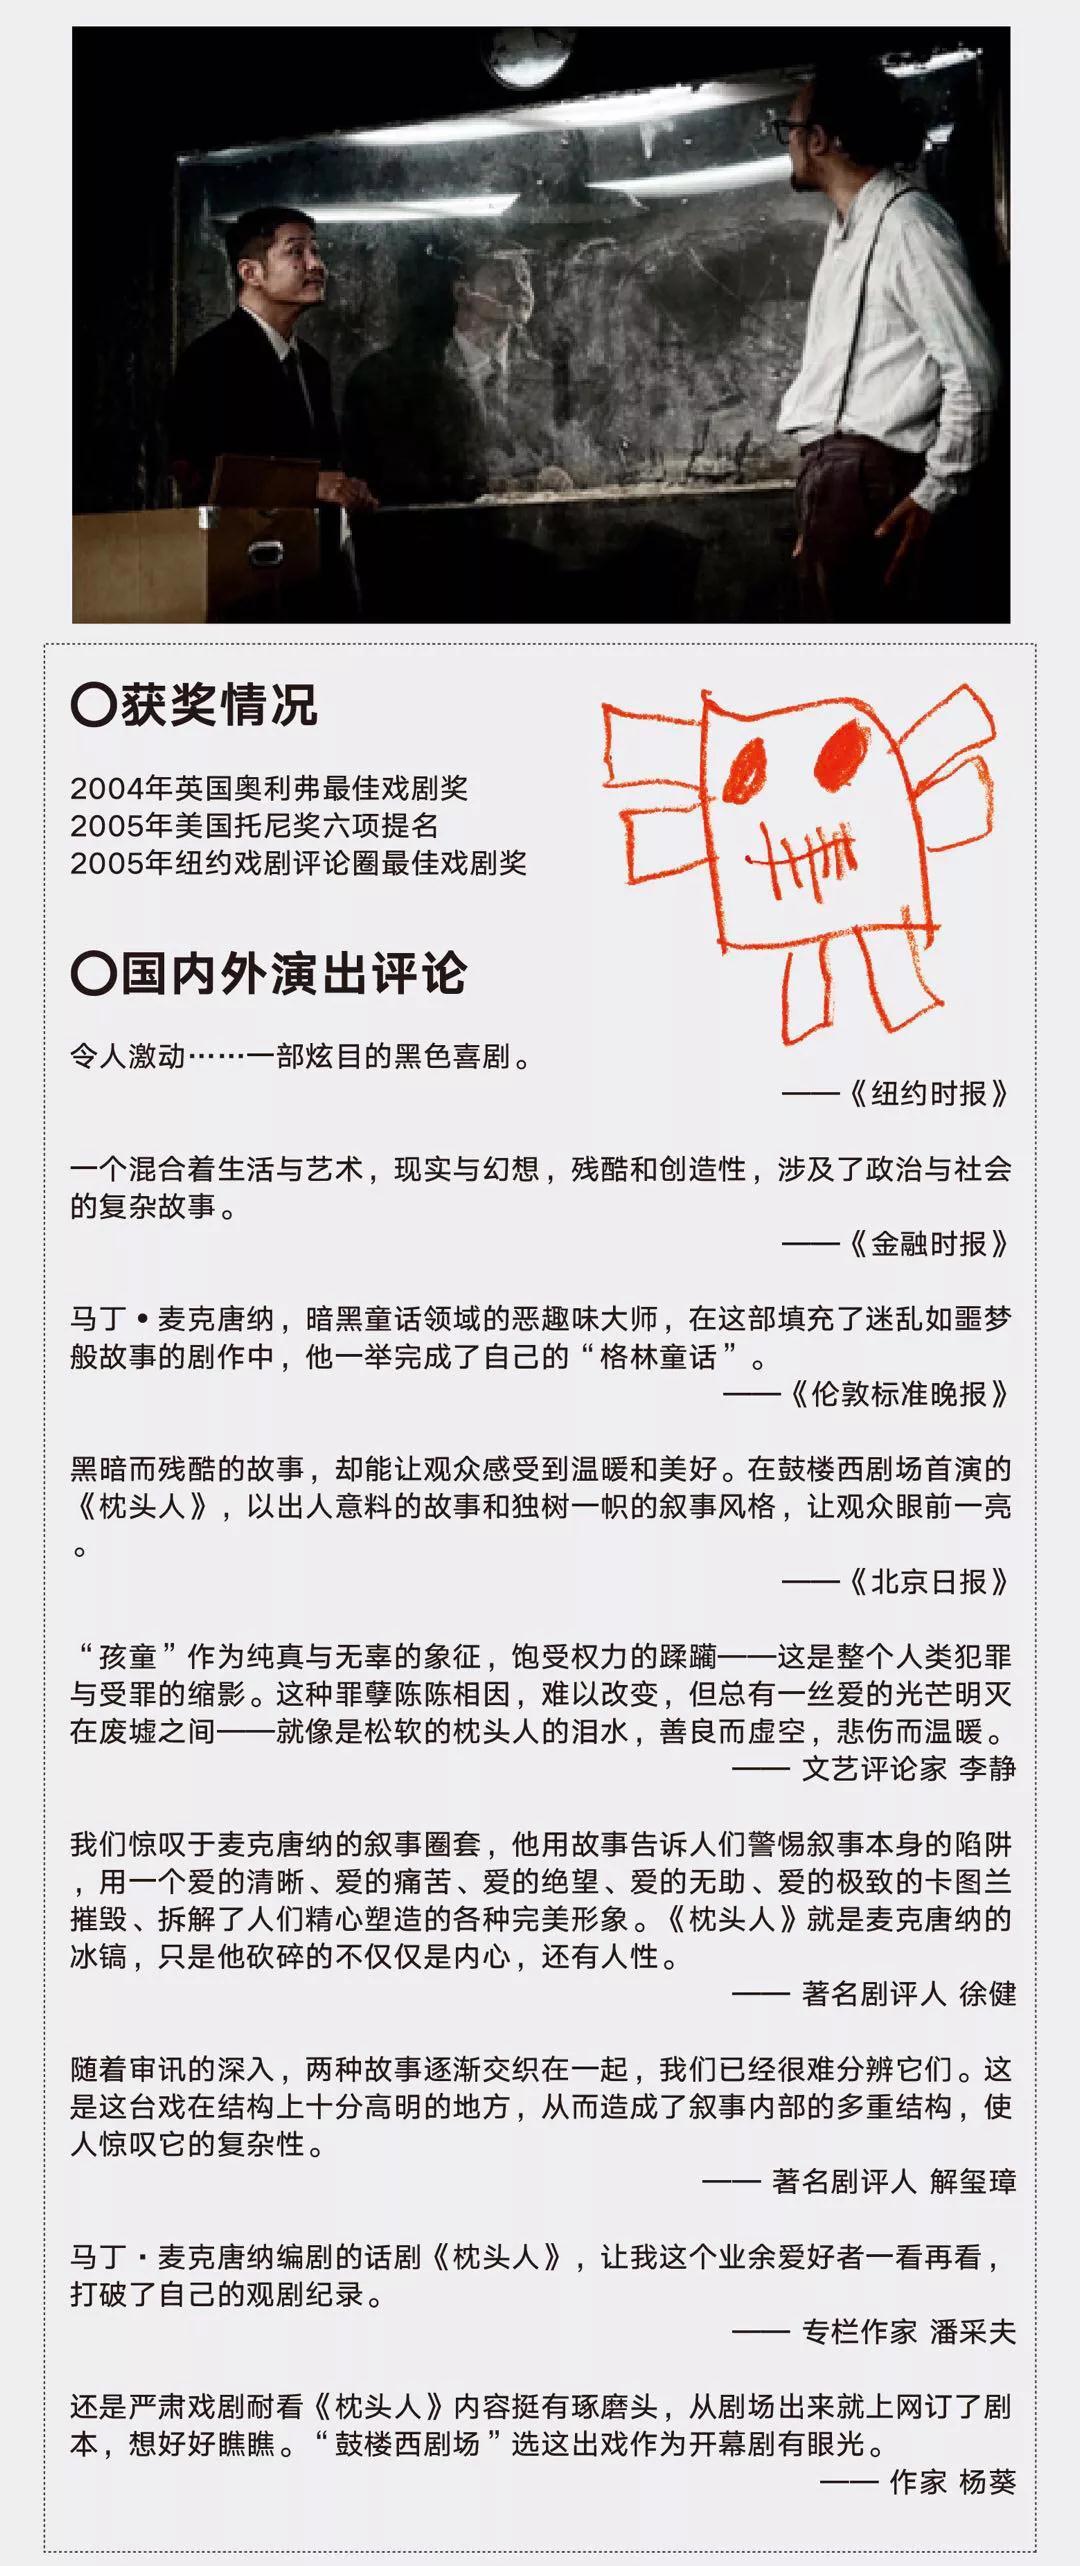 〇获奖情况
2004年英国奥利弗最佳戏剧奖
2005年美国托尼奖六项提名
2005年纽约戏剧评论圈最佳戏剧奖
〇国内外演出评论
令人激动……一部炫目的黑色喜剧。
——《纽约时报》
一个混合着生活与艺术，现实与幻想，残酷和创造性，涉及了政治与社会
的复杂故事。
——《金融时报》
马丁•麦克唐纳，暗黑童话领域的恶趣味大师，在这部填充了迷乱如噩梦
般故事的剧作中，他一举完成了自己的“格林童话”。
——《伦敦标准晚报》
黑暗而残酷的故事，却能让观众感受到温暖和美好。在鼓楼西剧场首演的
《枕头人》，以出人意料的故事和独树一帜的叙事风格，让观众眼前一亮
。
——《北京日报》
“孩童”作为纯真与无辜的象征，饱受权力的蹂躏——这是整个人类犯罪
与受罪的缩影。这种罪孽陈陈相因，难以改变，但总有一丝爱的光芒明灭
在废墟之间——就像是松软的枕头人的泪水，善良而虚空，悲伤而温暖。
—— 文艺评论家 李静
我们惊叹于麦克唐纳的叙事圈套，他用故事告诉人们警惕叙事本身的陷阱
，用一个爱的清晰、爱的痛苦、爱的绝望、爱的无助、爱的极致的卡图兰
摧毁、拆解了人们精心塑造的各种完美形象。《枕头人》就是麦克唐纳的
冰镐，只是他砍碎的不仅仅是内心，还有人性。
—— 著名剧评人 徐健
随着审讯的深入，两种故事逐渐交织在一起，我们已经很难分辨它们。这
是这台戏在结构上十分高明的地方，从而造成了叙事内部的多重结构，使
人惊叹它的复杂性。
—— 著名剧评人 解玺璋
马丁·麦克唐纳编剧的话剧《枕头人》，让我这个业余爱好者一看再看，
打破了自己的观剧纪录。
—— 专栏作家 潘采夫
还是严肃戏剧耐看《枕头人》内容挺有琢磨头，从剧场出来就上网订了剧
本，想好好瞧瞧。“鼓楼西剧场”选这出戏作为开幕剧有眼光。
—— 作家 杨葵